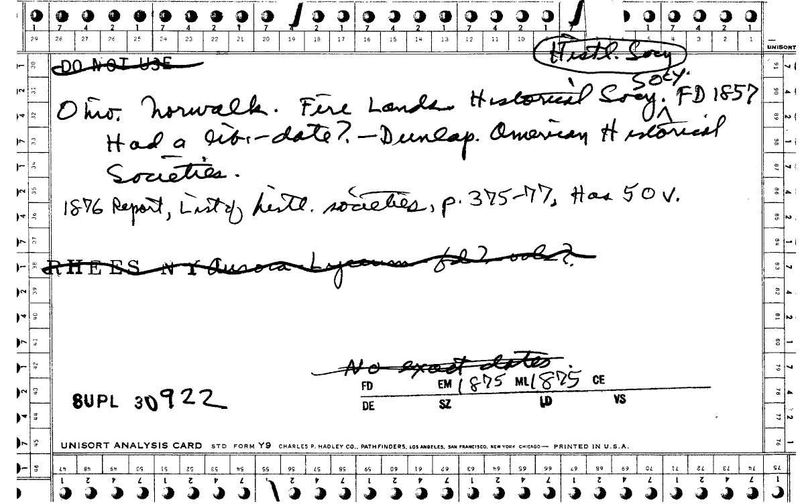 Histl. Socy
DO NOT USE
SOCY.
Ohio. Norwalk. Fire Lands Historical Socy. FD 1857
Had a lib.-date? - Dunlap. American Historical
Societies.
1876 Report, List of histl. societies, p. 375-77, Has 50 v.
RHEES NY Aurora Lyceum fd? vols?
No exact dates.
FD EM 1875 ML 1875 CE
SUPL 30922
DE SZ LD VS
UNISORT ANALYSIS CARD STD FORM Y9 CHARLES P. HADLEY CO., PATHFINDERS, LOS ANGELES, SAN FRANCISCO, NEW YORK CHICAGO — PRINTED IN U.S.A.
UNISORT